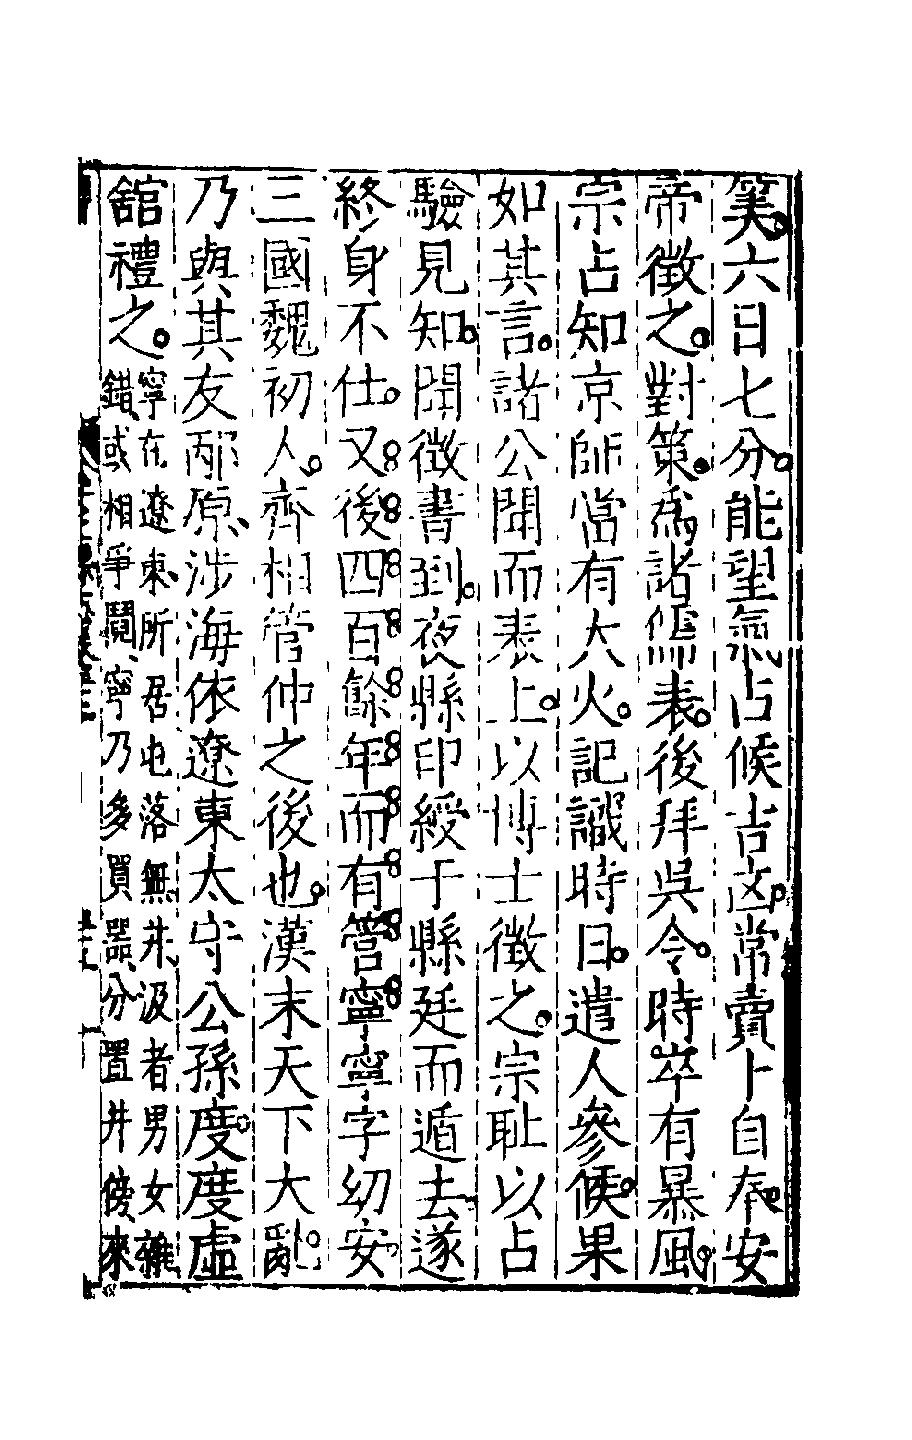 筭六日七分能望氣占候吉凶常賣卜自奉安
帝徵之對策爲諸儒表後拜吳令時卒有暴風
宗占知京師當有大火記識時日遣人參候果
如其言諸公聞而表上以博士徵之宗恥以占
驗見知聞徵書到夜縣印綬于縣廷而遁去遂
終身不仕又後四百餘年而有管寧寧字幼安
三國魏初人齊相管仲之後也漢末天下大亂
乃與其友邴原涉海依遼東太守公孫度度虛
舘禮之
寧在遼東所居屯落無井汲者男女雜
錯或相爭鬪寧乃多買器分置井傍來